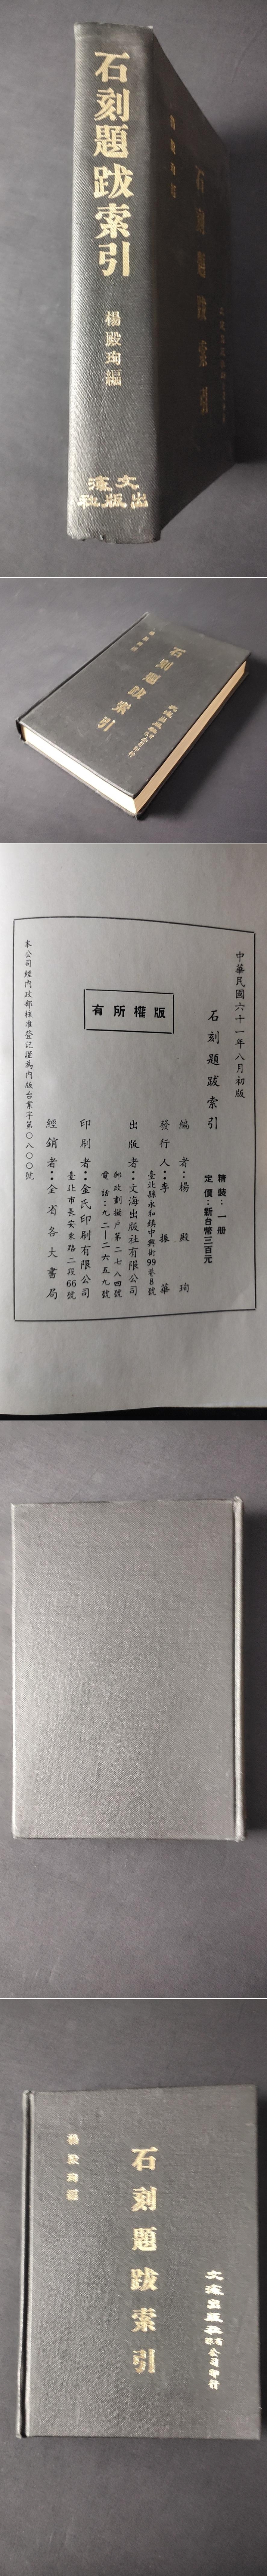 石刻題跋索引
楊殿珣編
文海
出版社
石刻題跋索引
中華民國六十一年八月初版
石刻題跋索引
精裝：一冊
定價：新台幣三百元
版權所有
編者：楊殿珣
發行人：李振華
臺北縣永和鎮中興街99巷8號
出版者：文海出版社有限公司
郵政劃撥戶第二七八四號
電話：九二一二六五九號
印刷者：金氏印刷有限公司
臺北市長安東路二段66號
經銷者：全省各大書局
本公司經內政部核准登記證為內版台業字第〇八〇〇號
文海出版社有限公司印行
石刻題跋索引
楊殿珣編